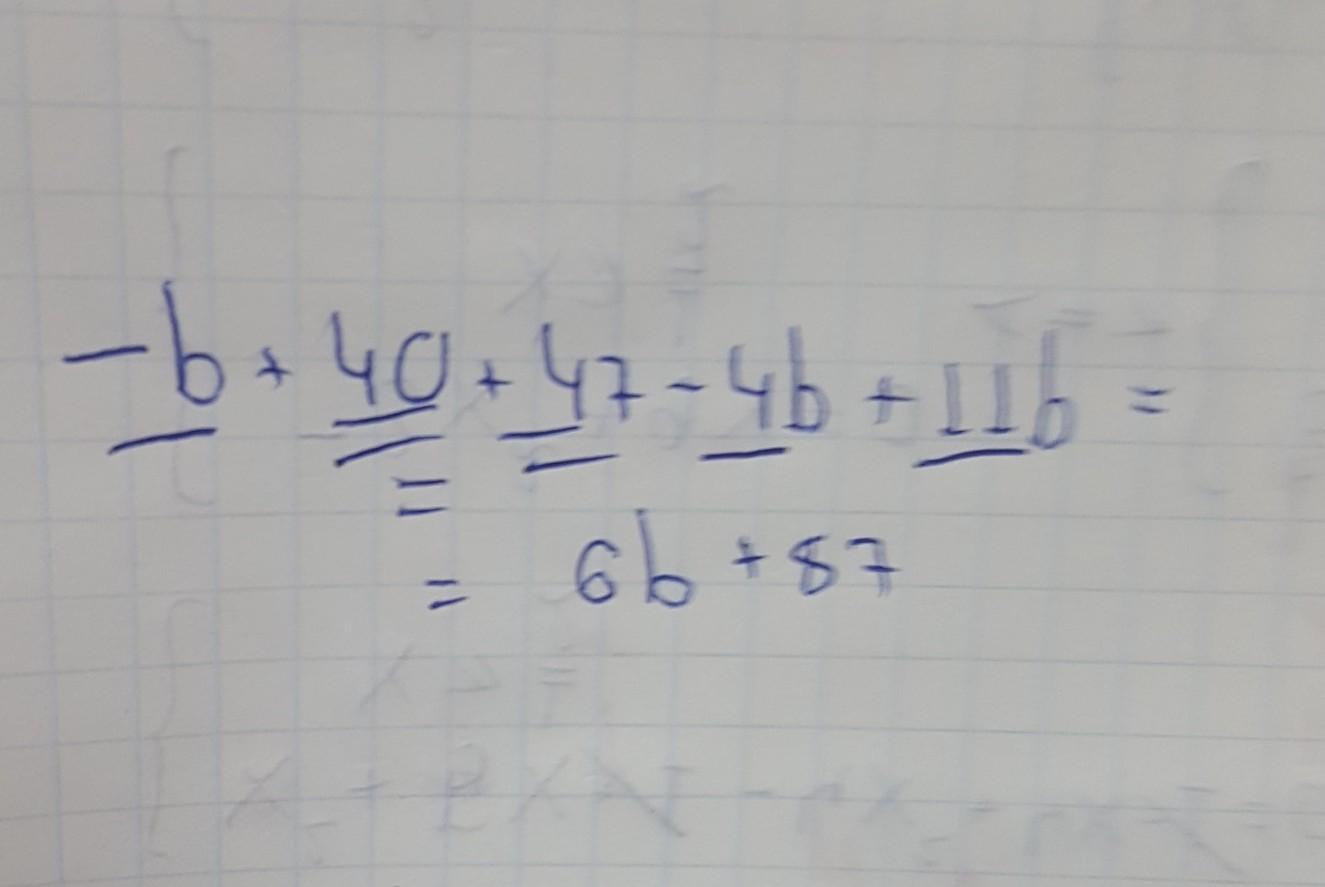 -b + 40 + 47 - 4b + 11b =
=
= 6b + 87